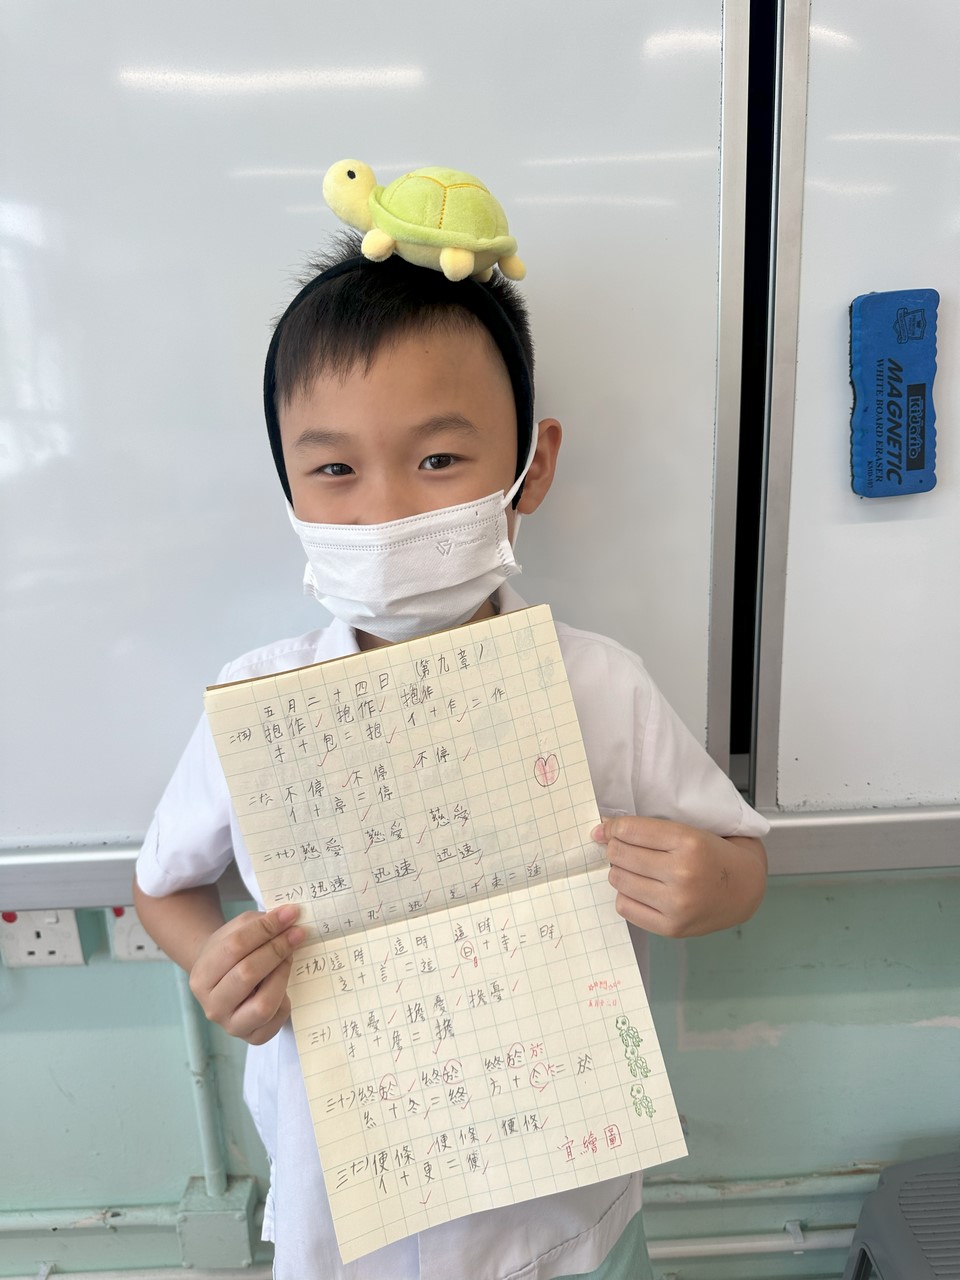 五月二十四日 (第九章)
二十五) 抱作 抱作 抱作
扌+包=抱 亻+乍=作
二十六 不停 不停 不停
亻+亭=停
二十七) 慈愛 慈愛 慈愛
二十八) 迅速 迅速 迅速
二十九) 這時 這時 這時
辶+言=這 日+寺=時
三十) 擔憂 擔憂 擔憂
扌+詹=擔
三十一) 終於 終於 終於 於
糹+冬=終 方+仒=於
三十二) 便條 便條 便條
亻+更=便
宜繪圖
Kidario
MAGNETIC
WHITE BOARD ERASER